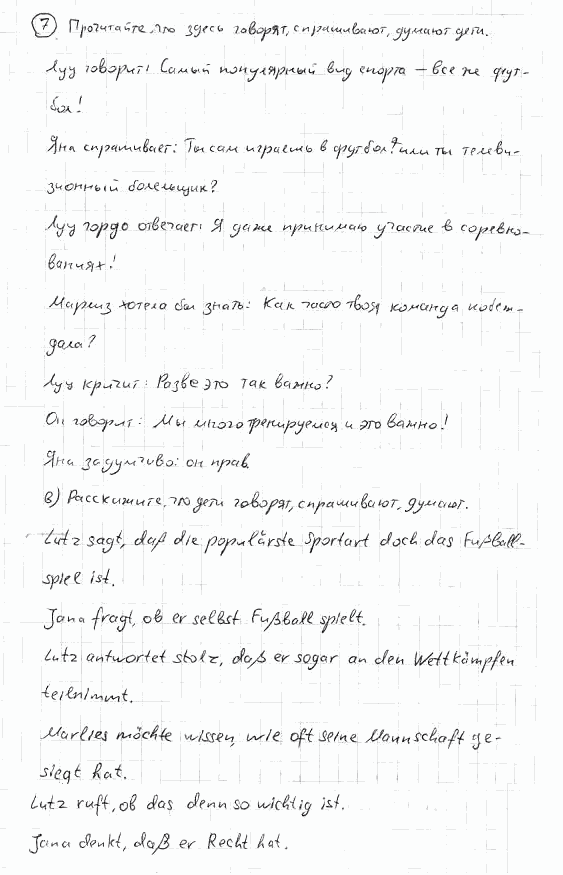 7 Прочитайте, что здесь говорят, спрашивают, думают дети.
Луц говорит: Самый популярный вид спорта – все же фут-
бол!
Яна спрашивает: Ты сам играешь в футбол? или ты телеви-
зионный болельщик?
Луц гордо отвечает: Я даже принимаю участие в соревно-
ваниях!
Марлиз хотела бы знать: Как часто твоя команда побеж-
дала?
Луц кричит: Разве это так важно?
Он говорит: Мы много тренируемся и это важно!
Яна задумчиво: он прав.
в) Расскажите, что дети говорят, спрашивают, думают.
Lutz sagt, daß die populärste Sportart doch das Fußball-
spiel ist.
Jana fragt, ob er selbst Fußball spielt.
Lutz antwortet stolz, daß er sogar an den Wettkämpfen
teilnimmt.
Marlies möchte wissen, wie oft seine Mannschaft ge-
siegt hat.
Lutz ruft, ob das denn so wichtig ist.
Jana denkt, daß er Recht hat.